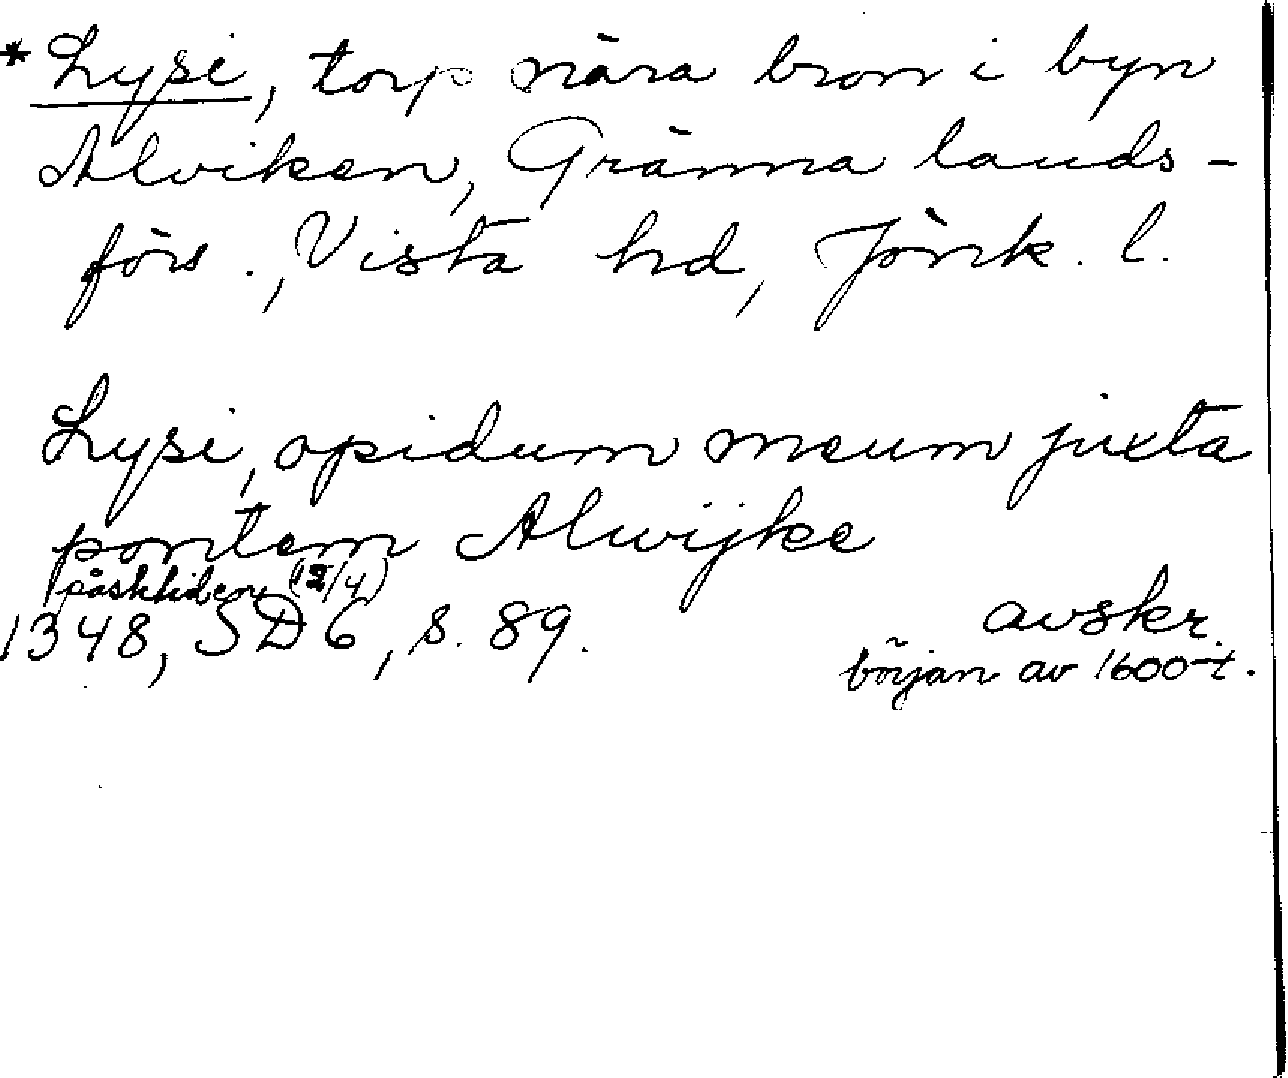 *Lysi, torp nära bron i byn
Alviken, Gränna lands-
förs., Vista hd, Jönk. l.
Lysi, opidum meum juxta
pontem Alwijke
påsktiden (12/4)
1348, SD 6, s. 89.
avskr.
början av 1600-t.